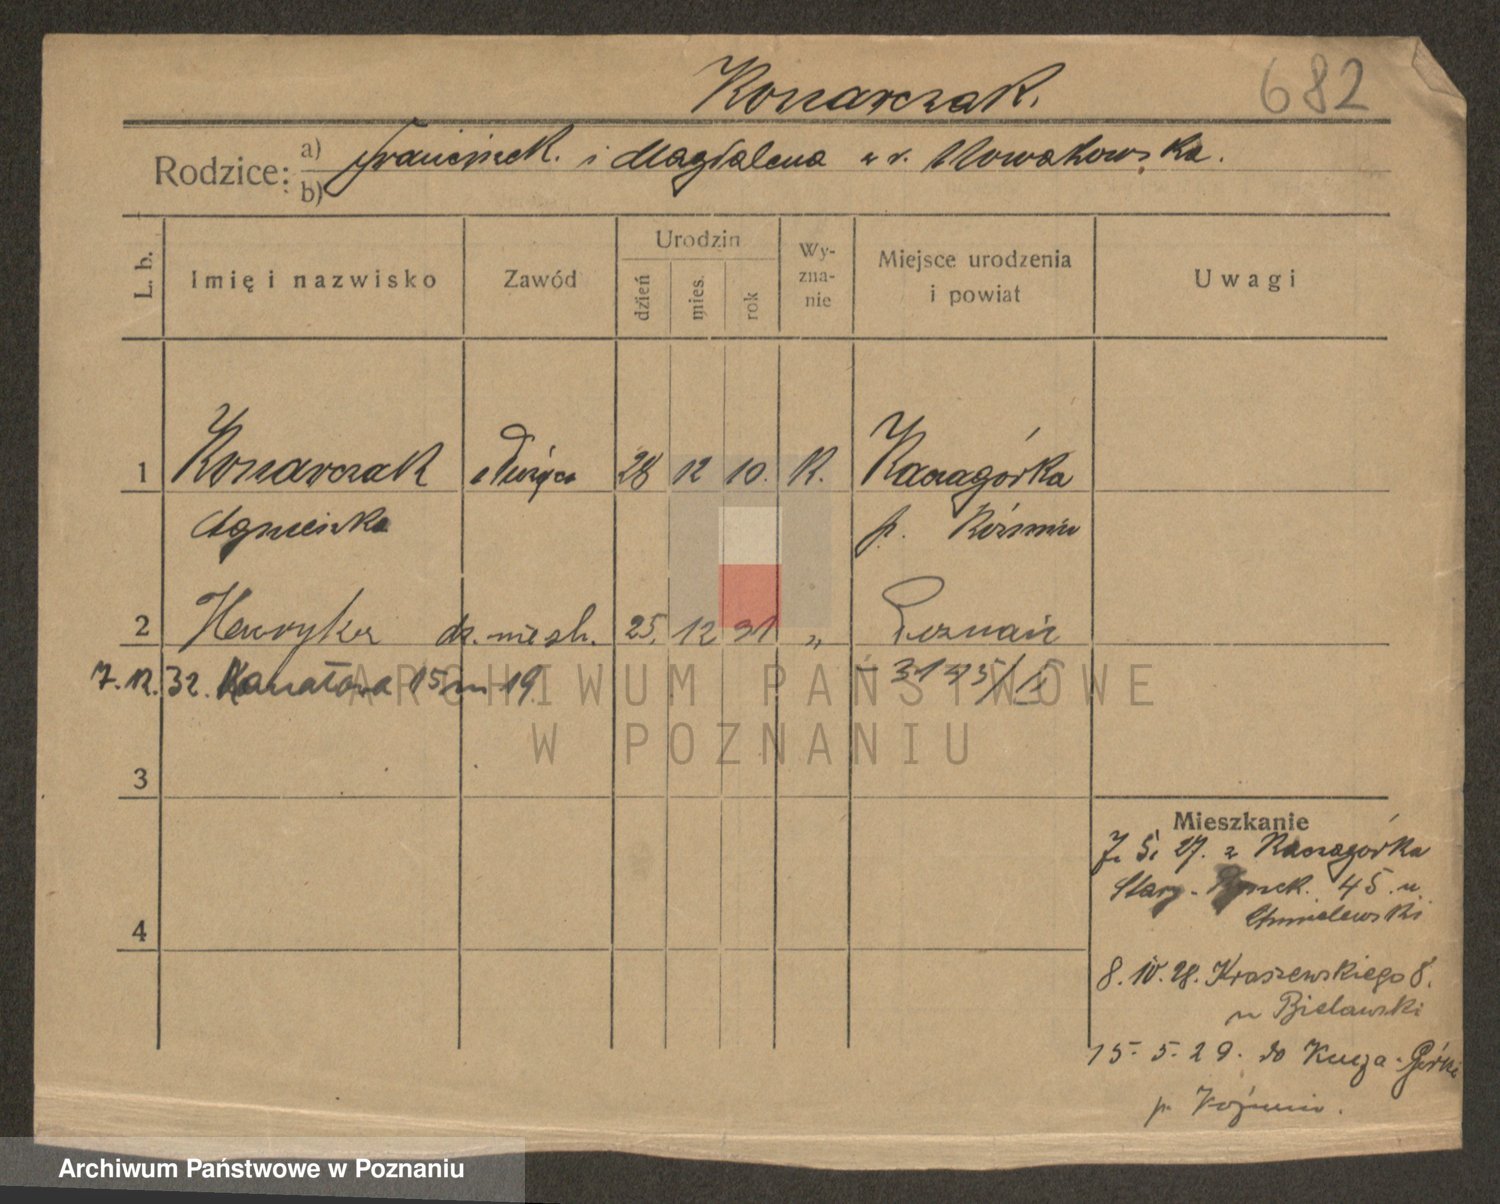 Konarczak.
682
Rodzice: a) Franciszek. i Magdalena z d. Nowakowska.
b)
L. b.
Imię i nazwisko
Zawód
Urodzin
dzień
mies.
rok
Wy-
zna-
nie
Miejsce urodzenia
i powiat
Uwagi
1 Konarczak służąca 28 12 10. K. Kaczagórka
Agnieszka p. Koźmin
2 Henryka dz. nieśl. 25. 12 31 „ Poznań
7.12.32. Kanałowa 15 m 19.
3143/
ARCHIWUM PAŃSTWOWE
W POZNANIU
3
Mieszkanie
7. 5. 27. z Kaczagórka
Stary-Rynek. 45. u.
Chmielewski
4
8. IV. 28. Kraszewskiego 8.
u Bielawski
15-5-29. do Kucza-Górki
p. Koźmin.
Archiwum Państwowe w Poznaniu